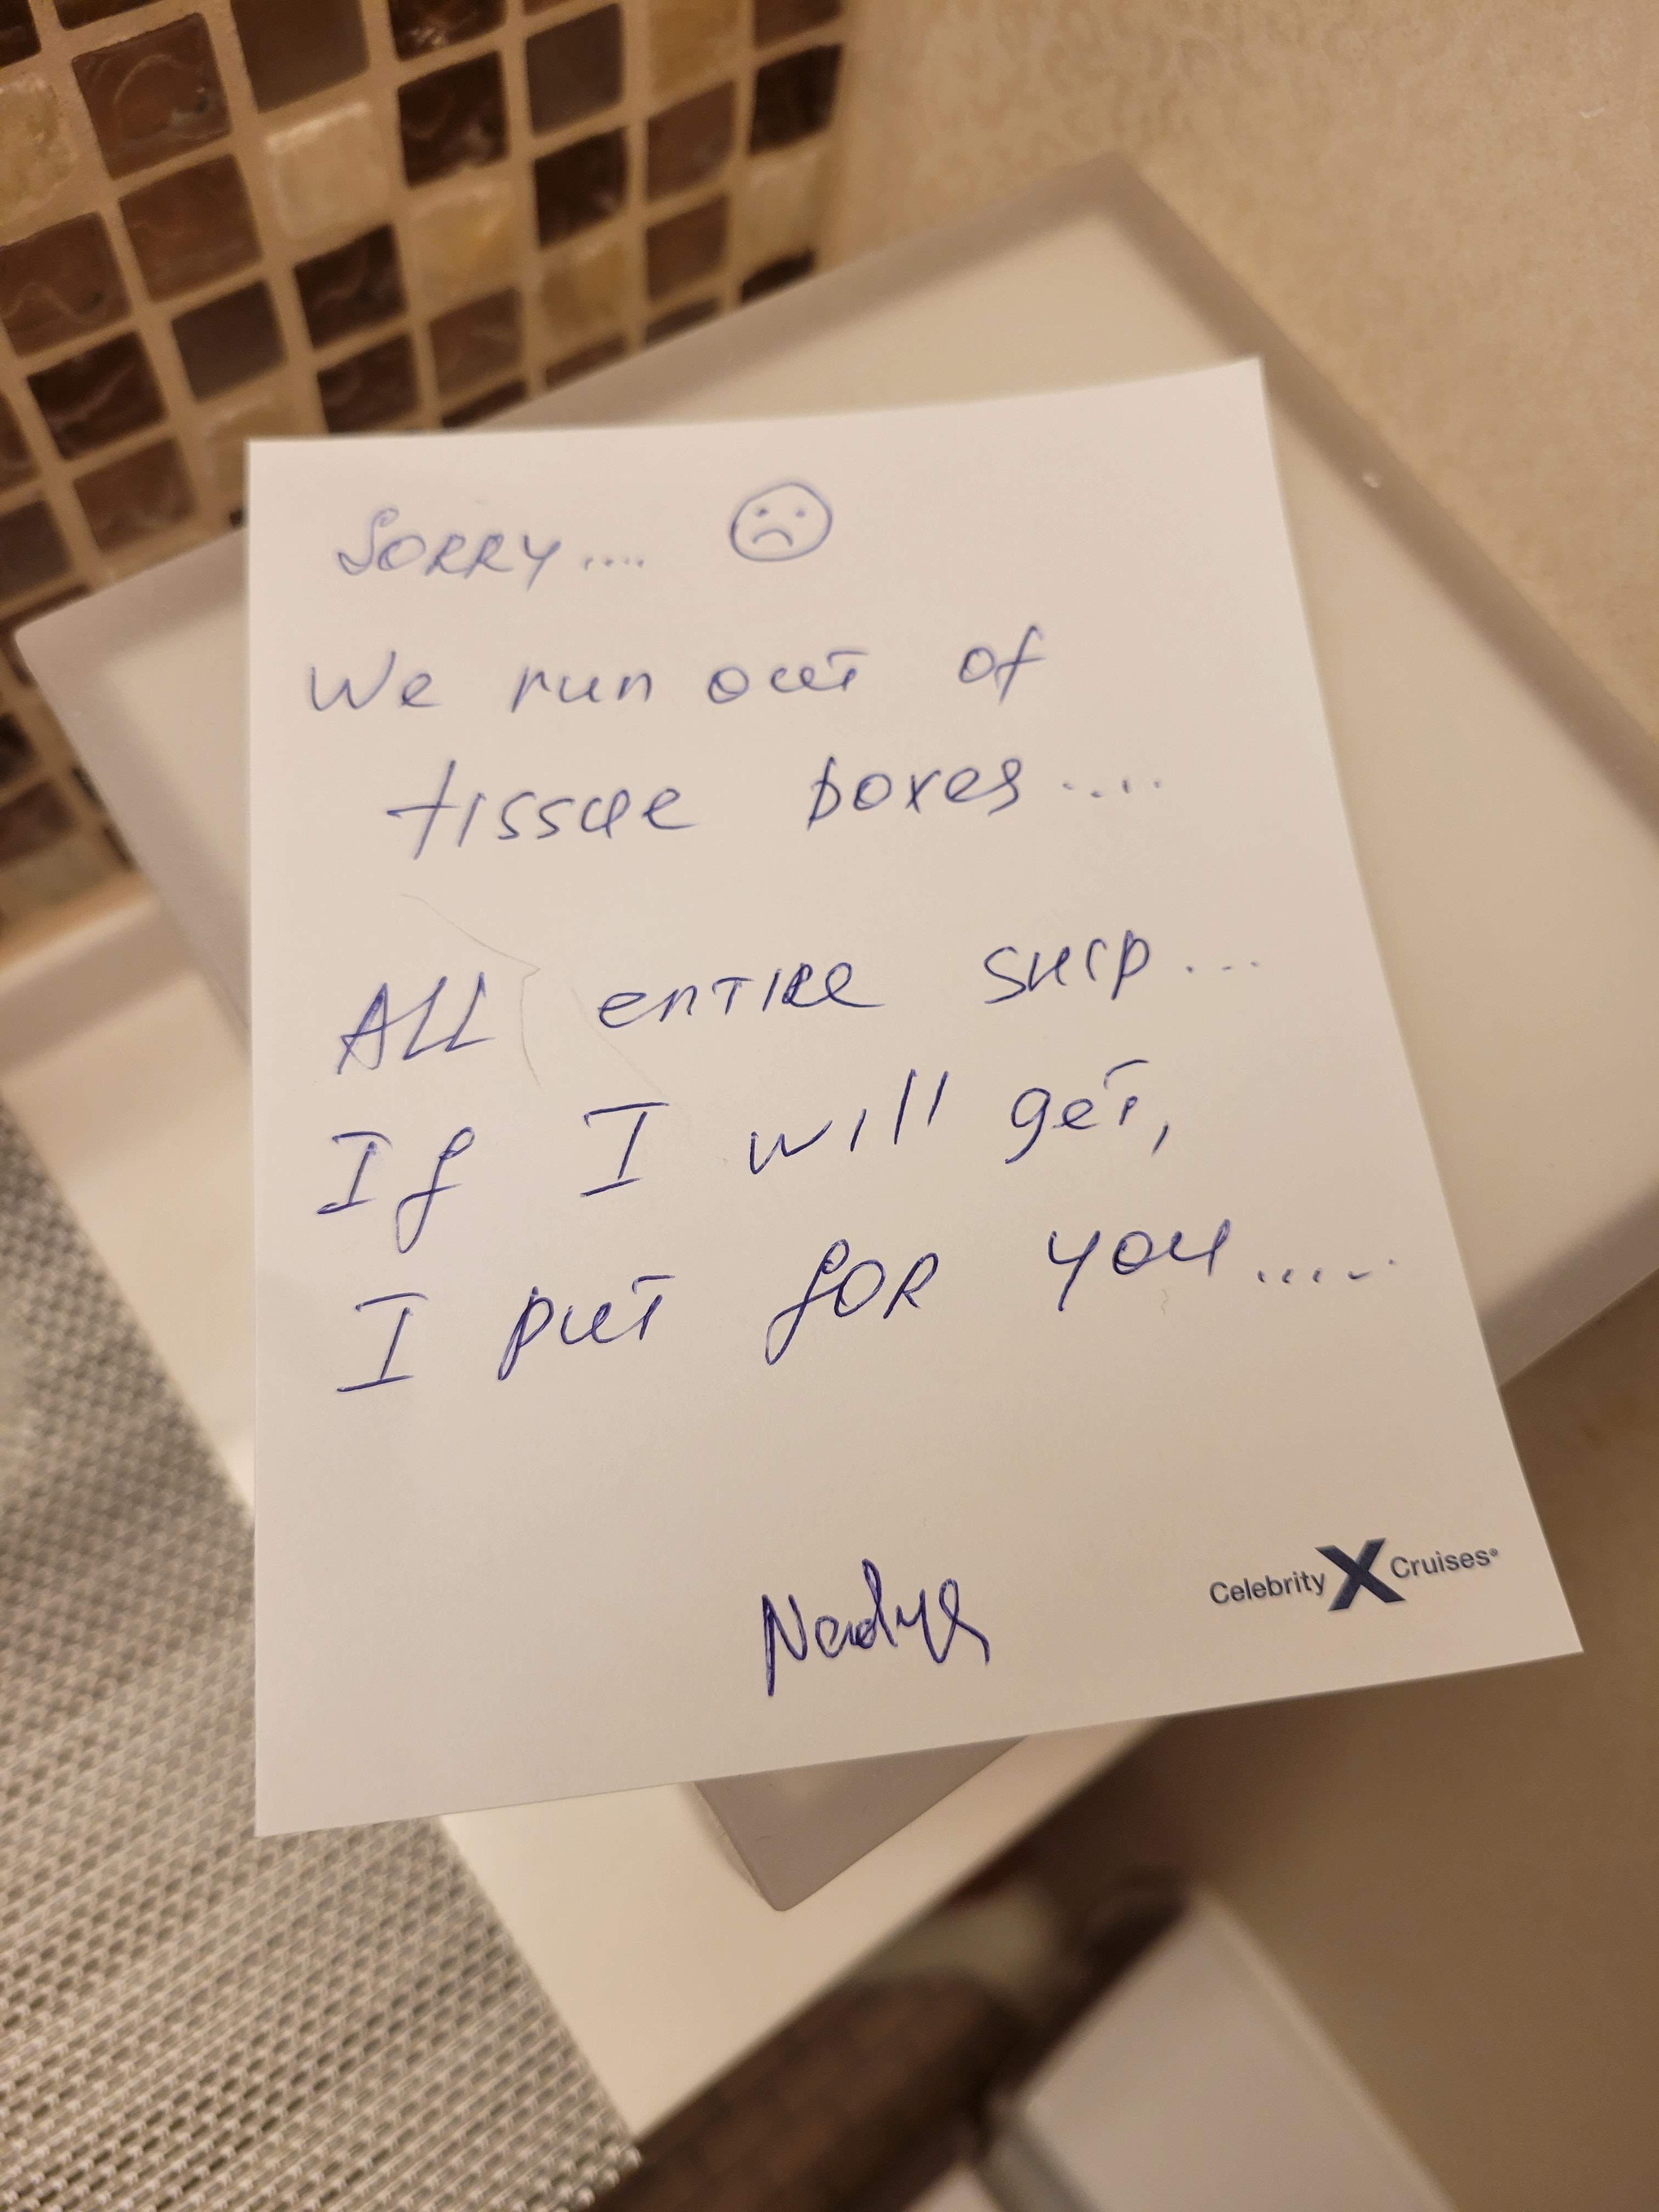 SORRY.... ☹
We run out of
tissue boxes....
All entire ship...
If I will get,
I put for you.....
Nadya
Celebrity X Cruises®